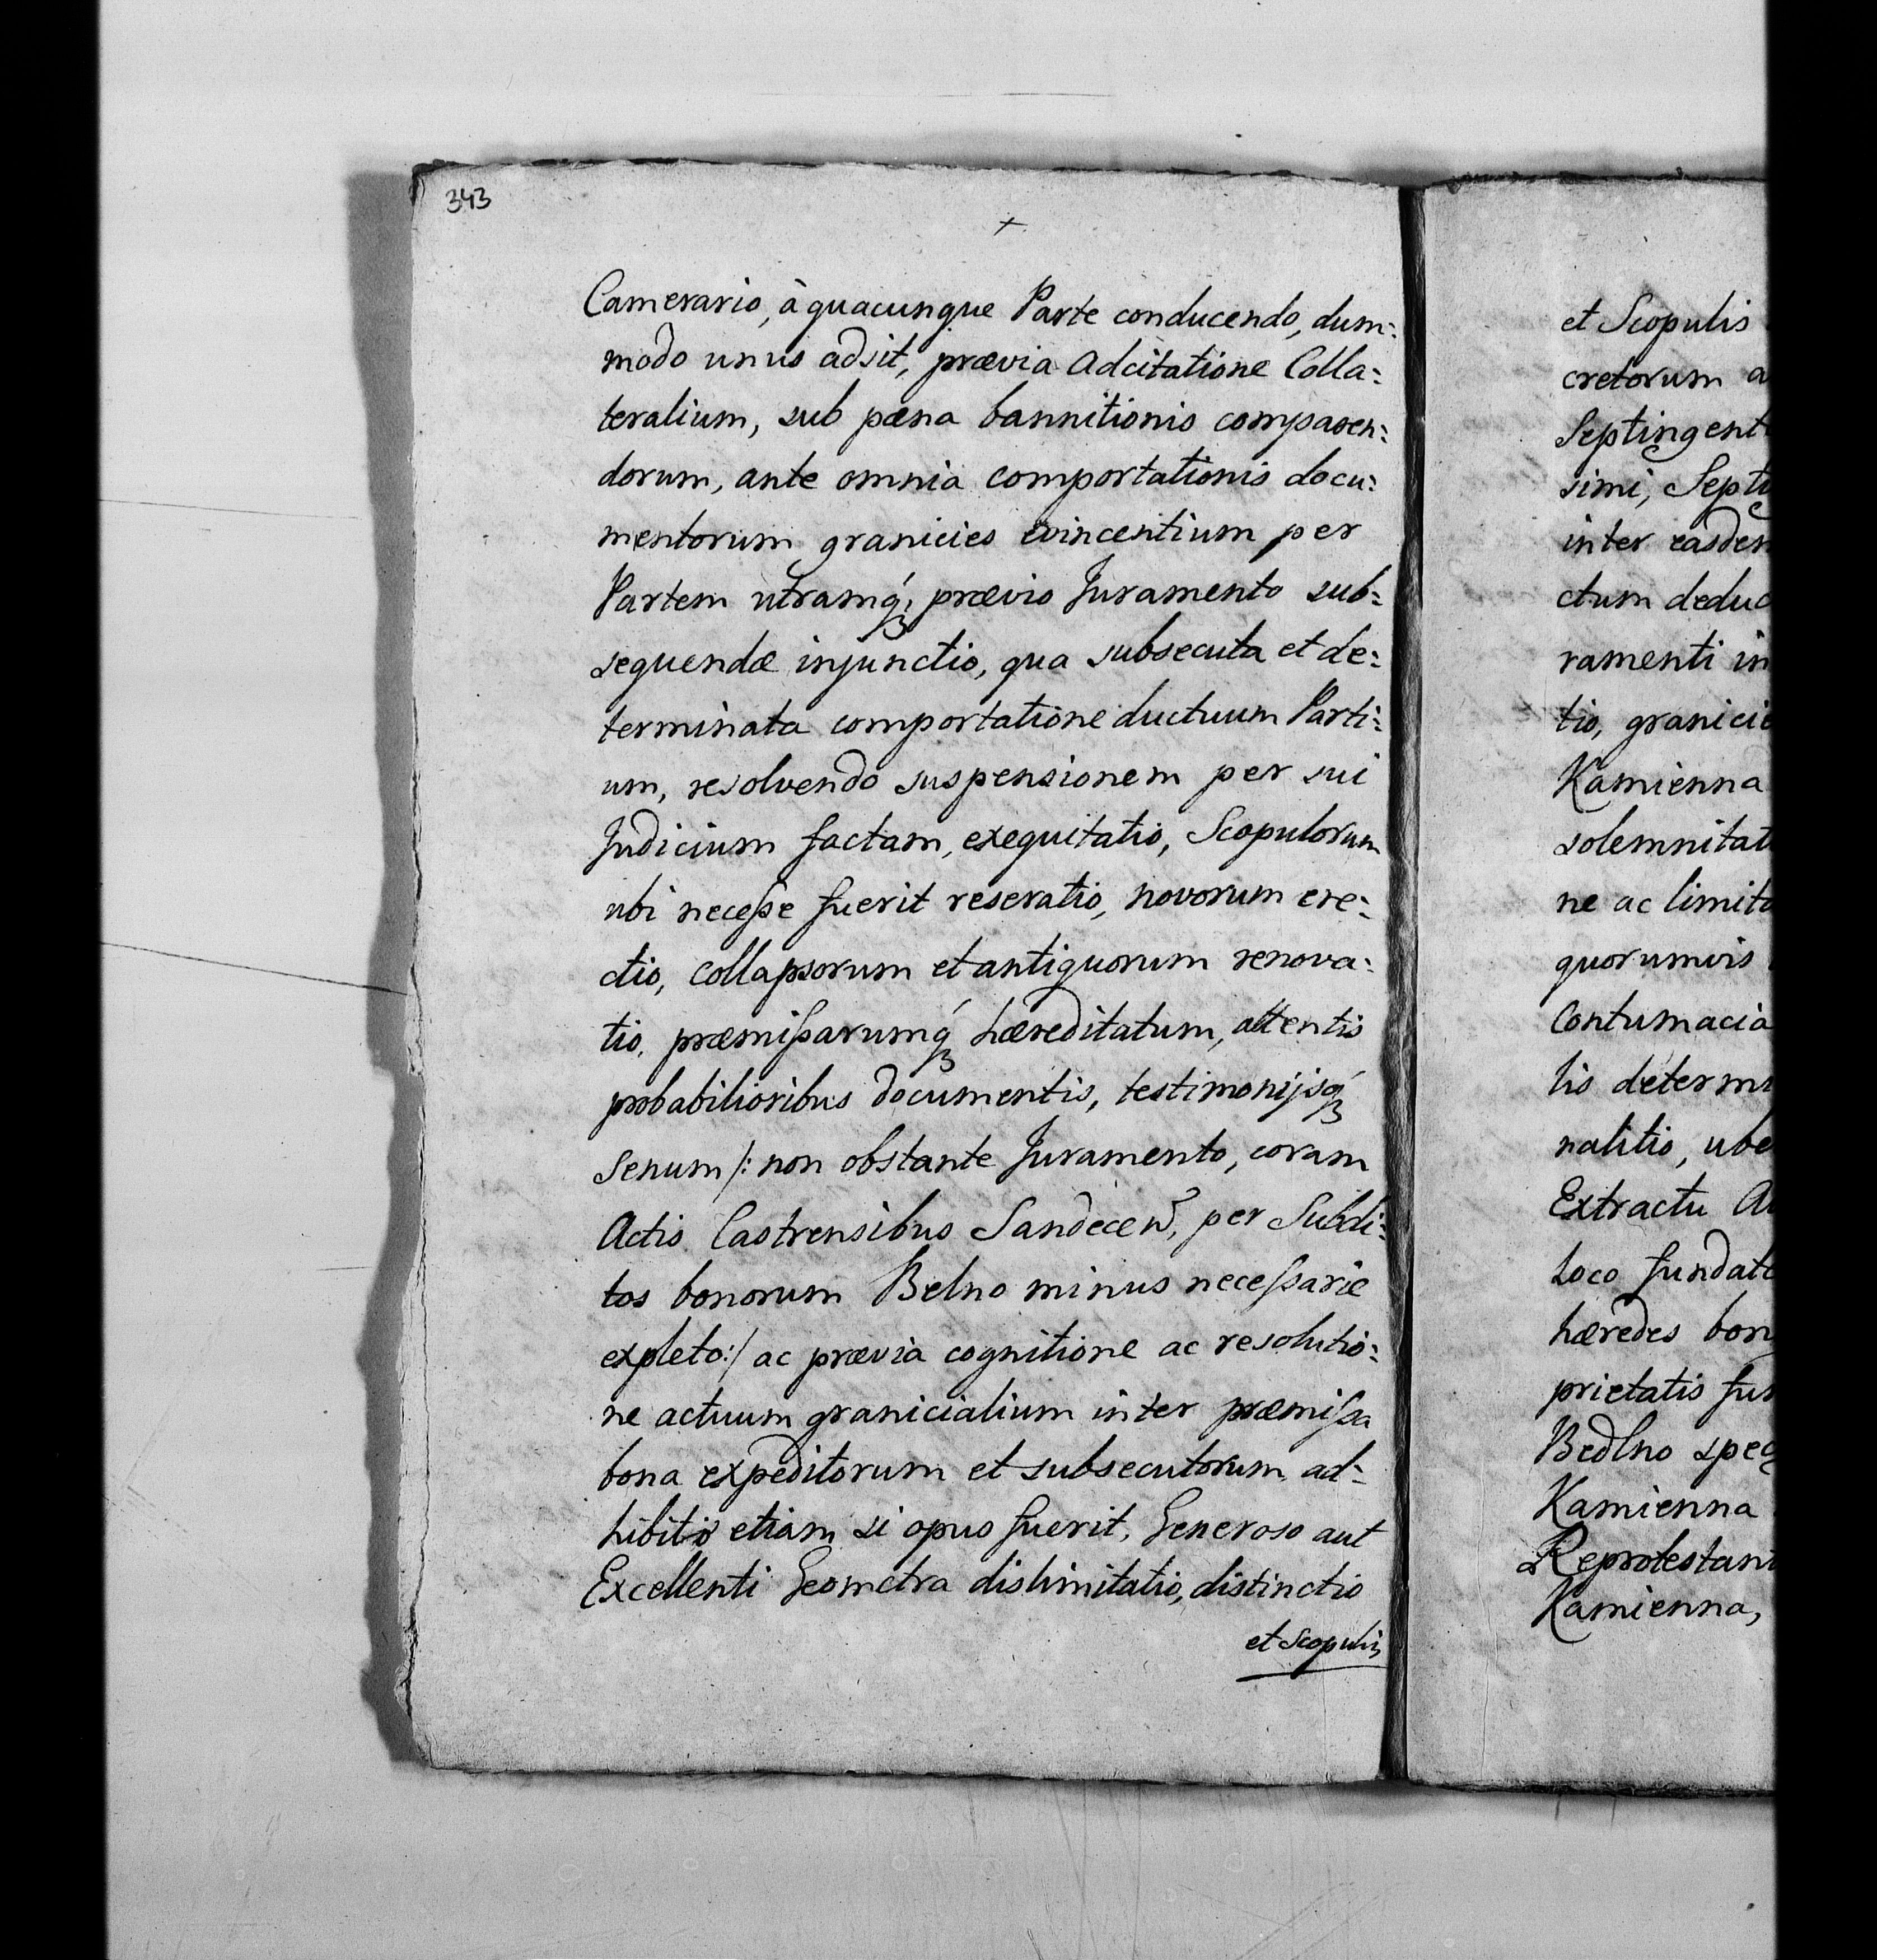 343
+
Camerario, à quacunque Parte conducendo, dum:
modo unus adsit, prævia Adcitatione Colla:
teralium, sub pæna bannitionis comparen:
dorum, ante omnia comportationis docu:
mentorum granicies evincentium per
Partem utramq́ꝫ prævio Juramento sub:
sequendæ injunctio, qua subsecuta et de:
terminata comportatione ductuum Parti:
um, resolvendo suspensionem per sui
Judicium factam, exequitatio, Scopulorum
ubi necesse fuerit reseratio, novorum ere:
ctio, collapsorum et antiquorum renova:
tio, præmissarumq́ꝫ hæreditatum, attentis
probabilioribus documentis, testimonijsq́ꝫ
Senum /: non obstante Juramento, coram
Actis Castrensibus Sandecen̄, per Subdi:
tos bonorum Belno minus necessarie
expleto :/ ac prævia cognitione ac resolutio:
ne actuum granicialium inter præmissa
bona expeditorum et subsecutorum, ad:
hibito etiam si opus fuerit, Generoso aut
Excellenti Geometra dislimitatio, distinctio
et Scopulis
et Scopulis
cretorum a
Septingent
simi, Septi
inter easdem
ctum deduc
ramenti in
tio, granicie
Kamienna
solemnitat
ne ac limita
quorumvis
Contumacia
lis determi
nalitio, ube
Extractu A
loco fundat
hæredes bon
prietatis fun
Bedlno spec
Kamienna
Reprotestan
Kamienna,